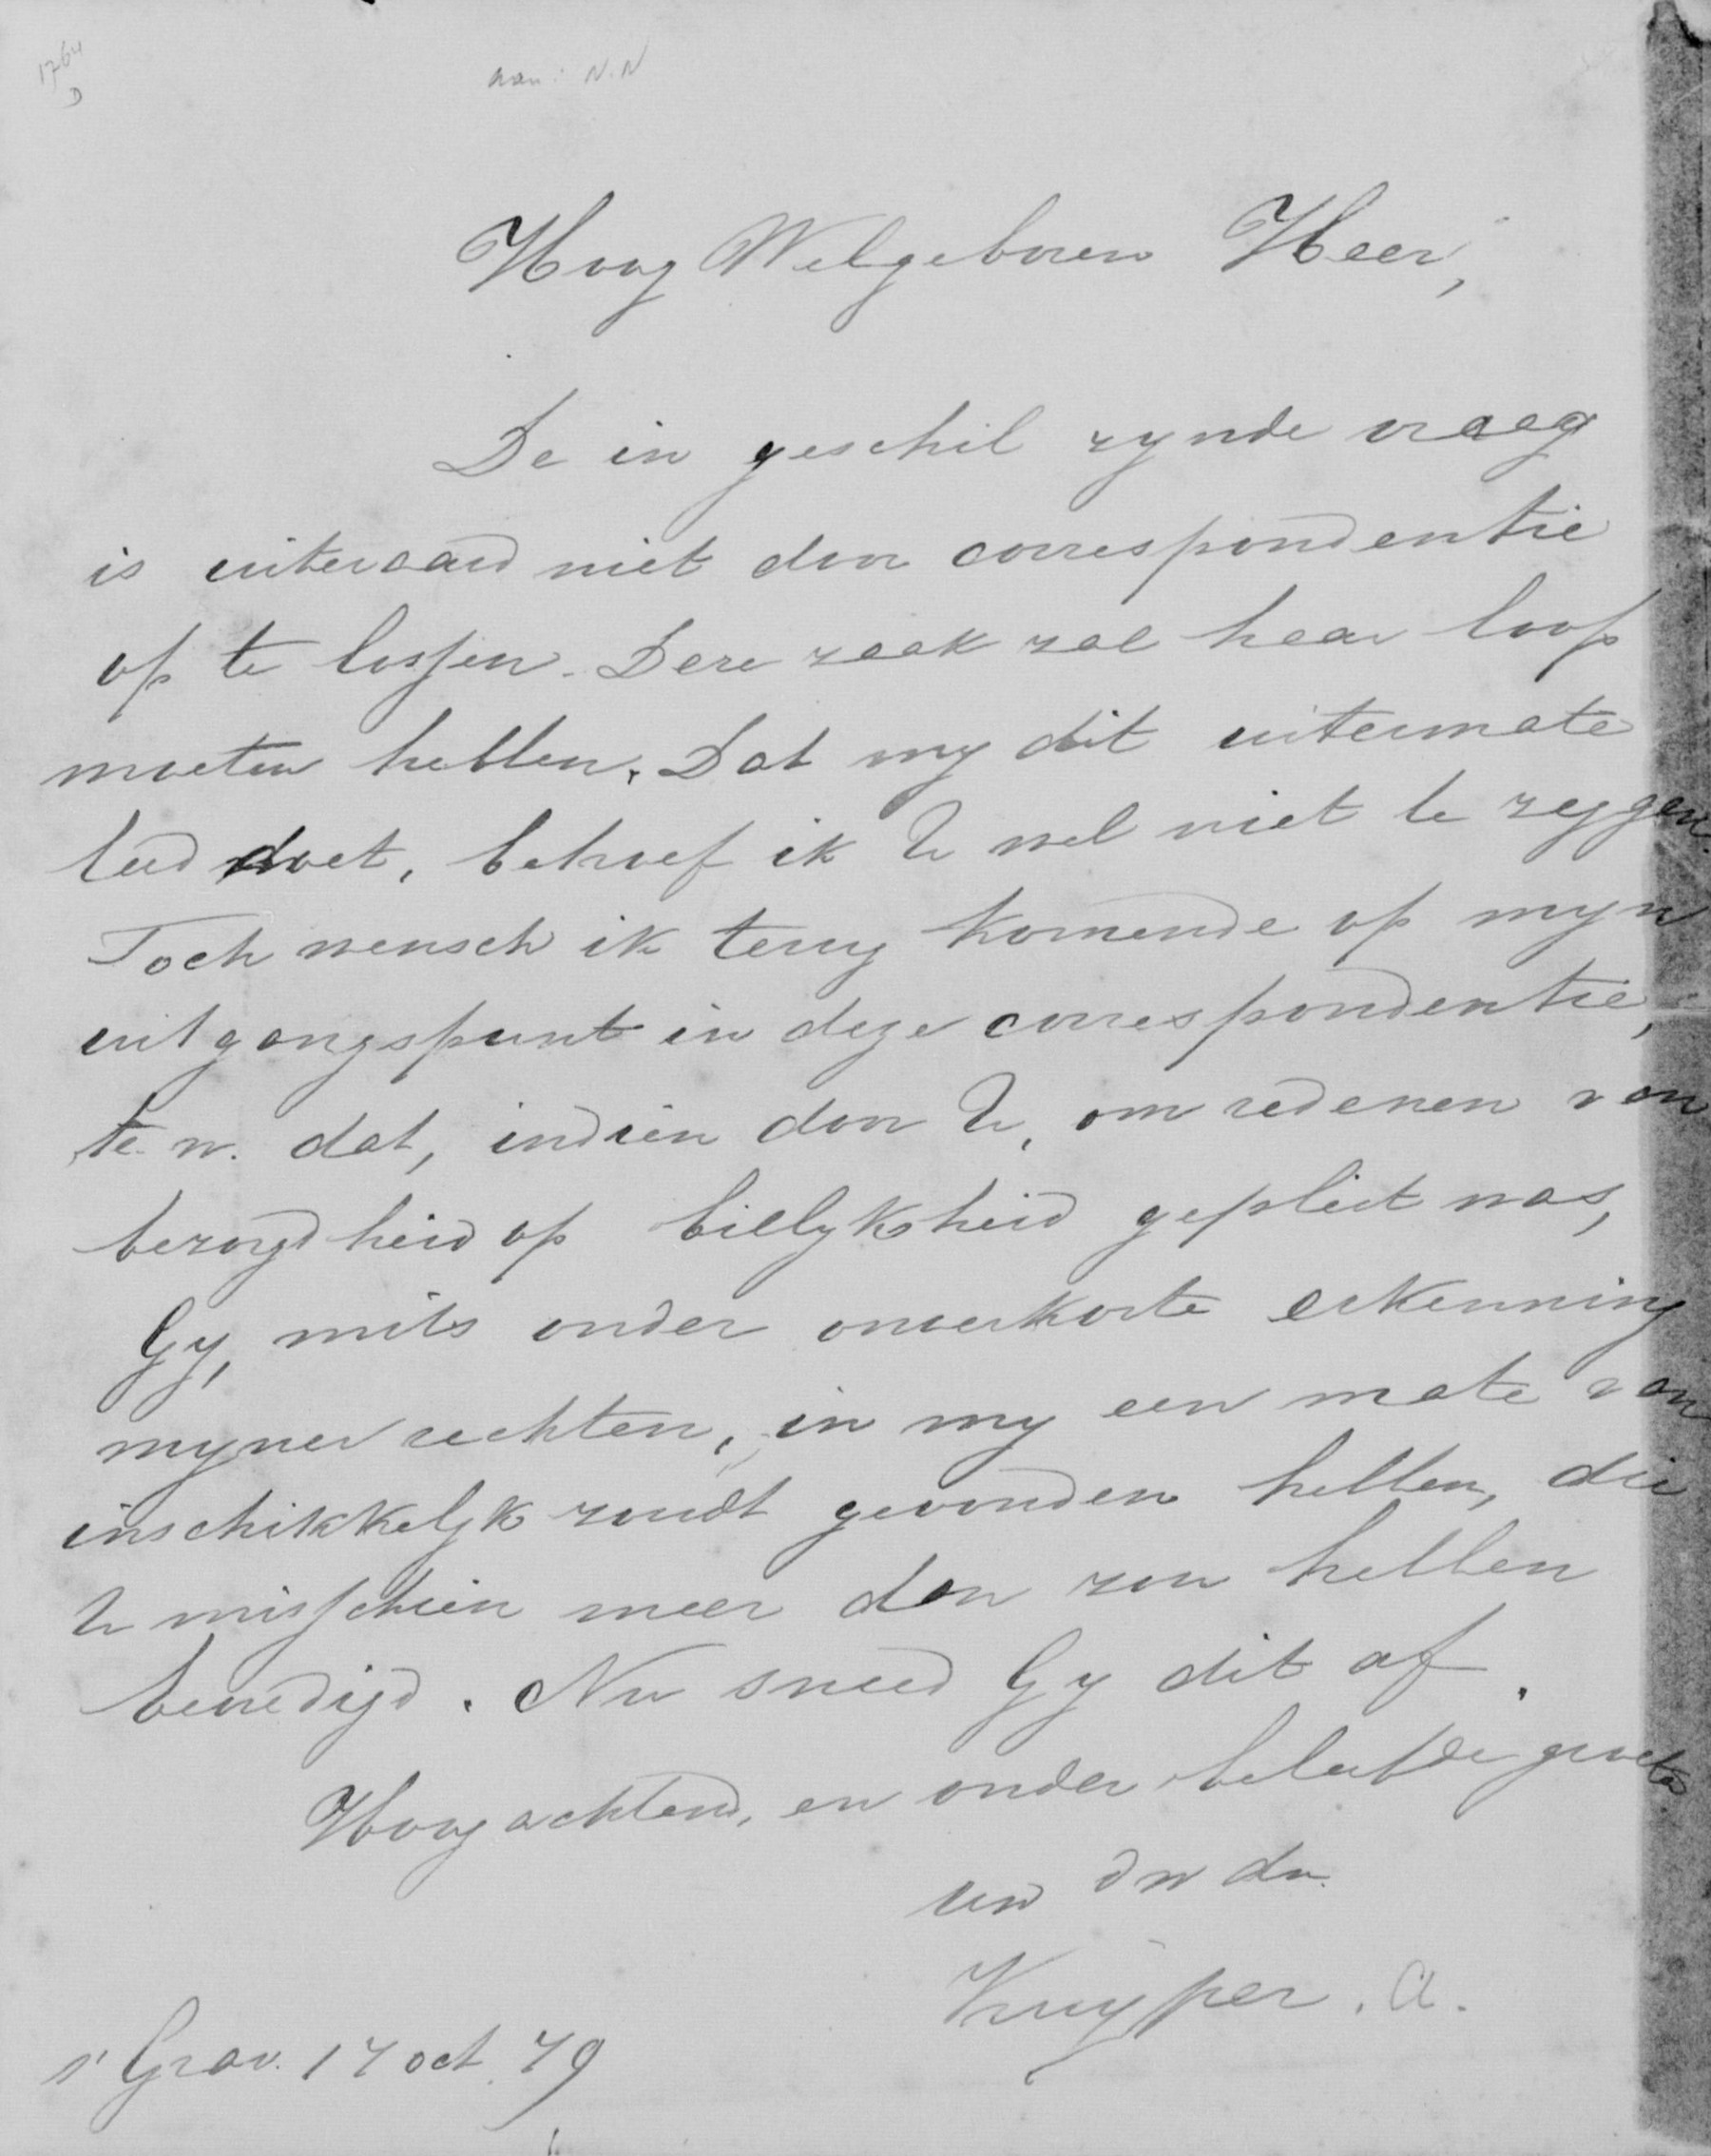 1764
D
aan: N.N
Hoog Welgeboren Heer,
De in geschil zynde vraag
is uiteraard niet door correspondentie
op te lossen. Deze zaak zal haar loop
moeten hebben. Dat my dit uitermate
leed doet, behoef ik U wel niet te zeggen.
Toch wensch ik terug komende op myn
uitgangspunt in deze correspondentie,
te w. dat, indien door U, om redenen van
bezorgdheid op billykheid gepleit was,
Gy, mits onder onverkorte erkenning
myner rechten, in my een mate van
inschikkelyk zoudt gevonden hebben, die
U misschien meer dan zou hebben
bevredigd. Nu sneed Gy dit af.
Hoogachtend, en onder beleefde groete
uw dw dr.
Kuyper. A.
s' Grav. 17 oct. 79